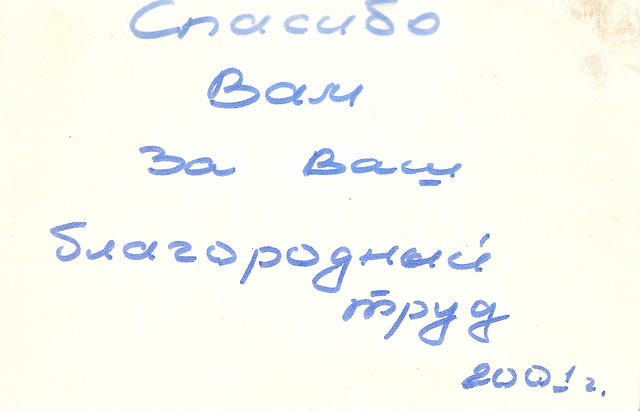 Спасибо
Вам
за Ваш
благородный
труд
2001 г.